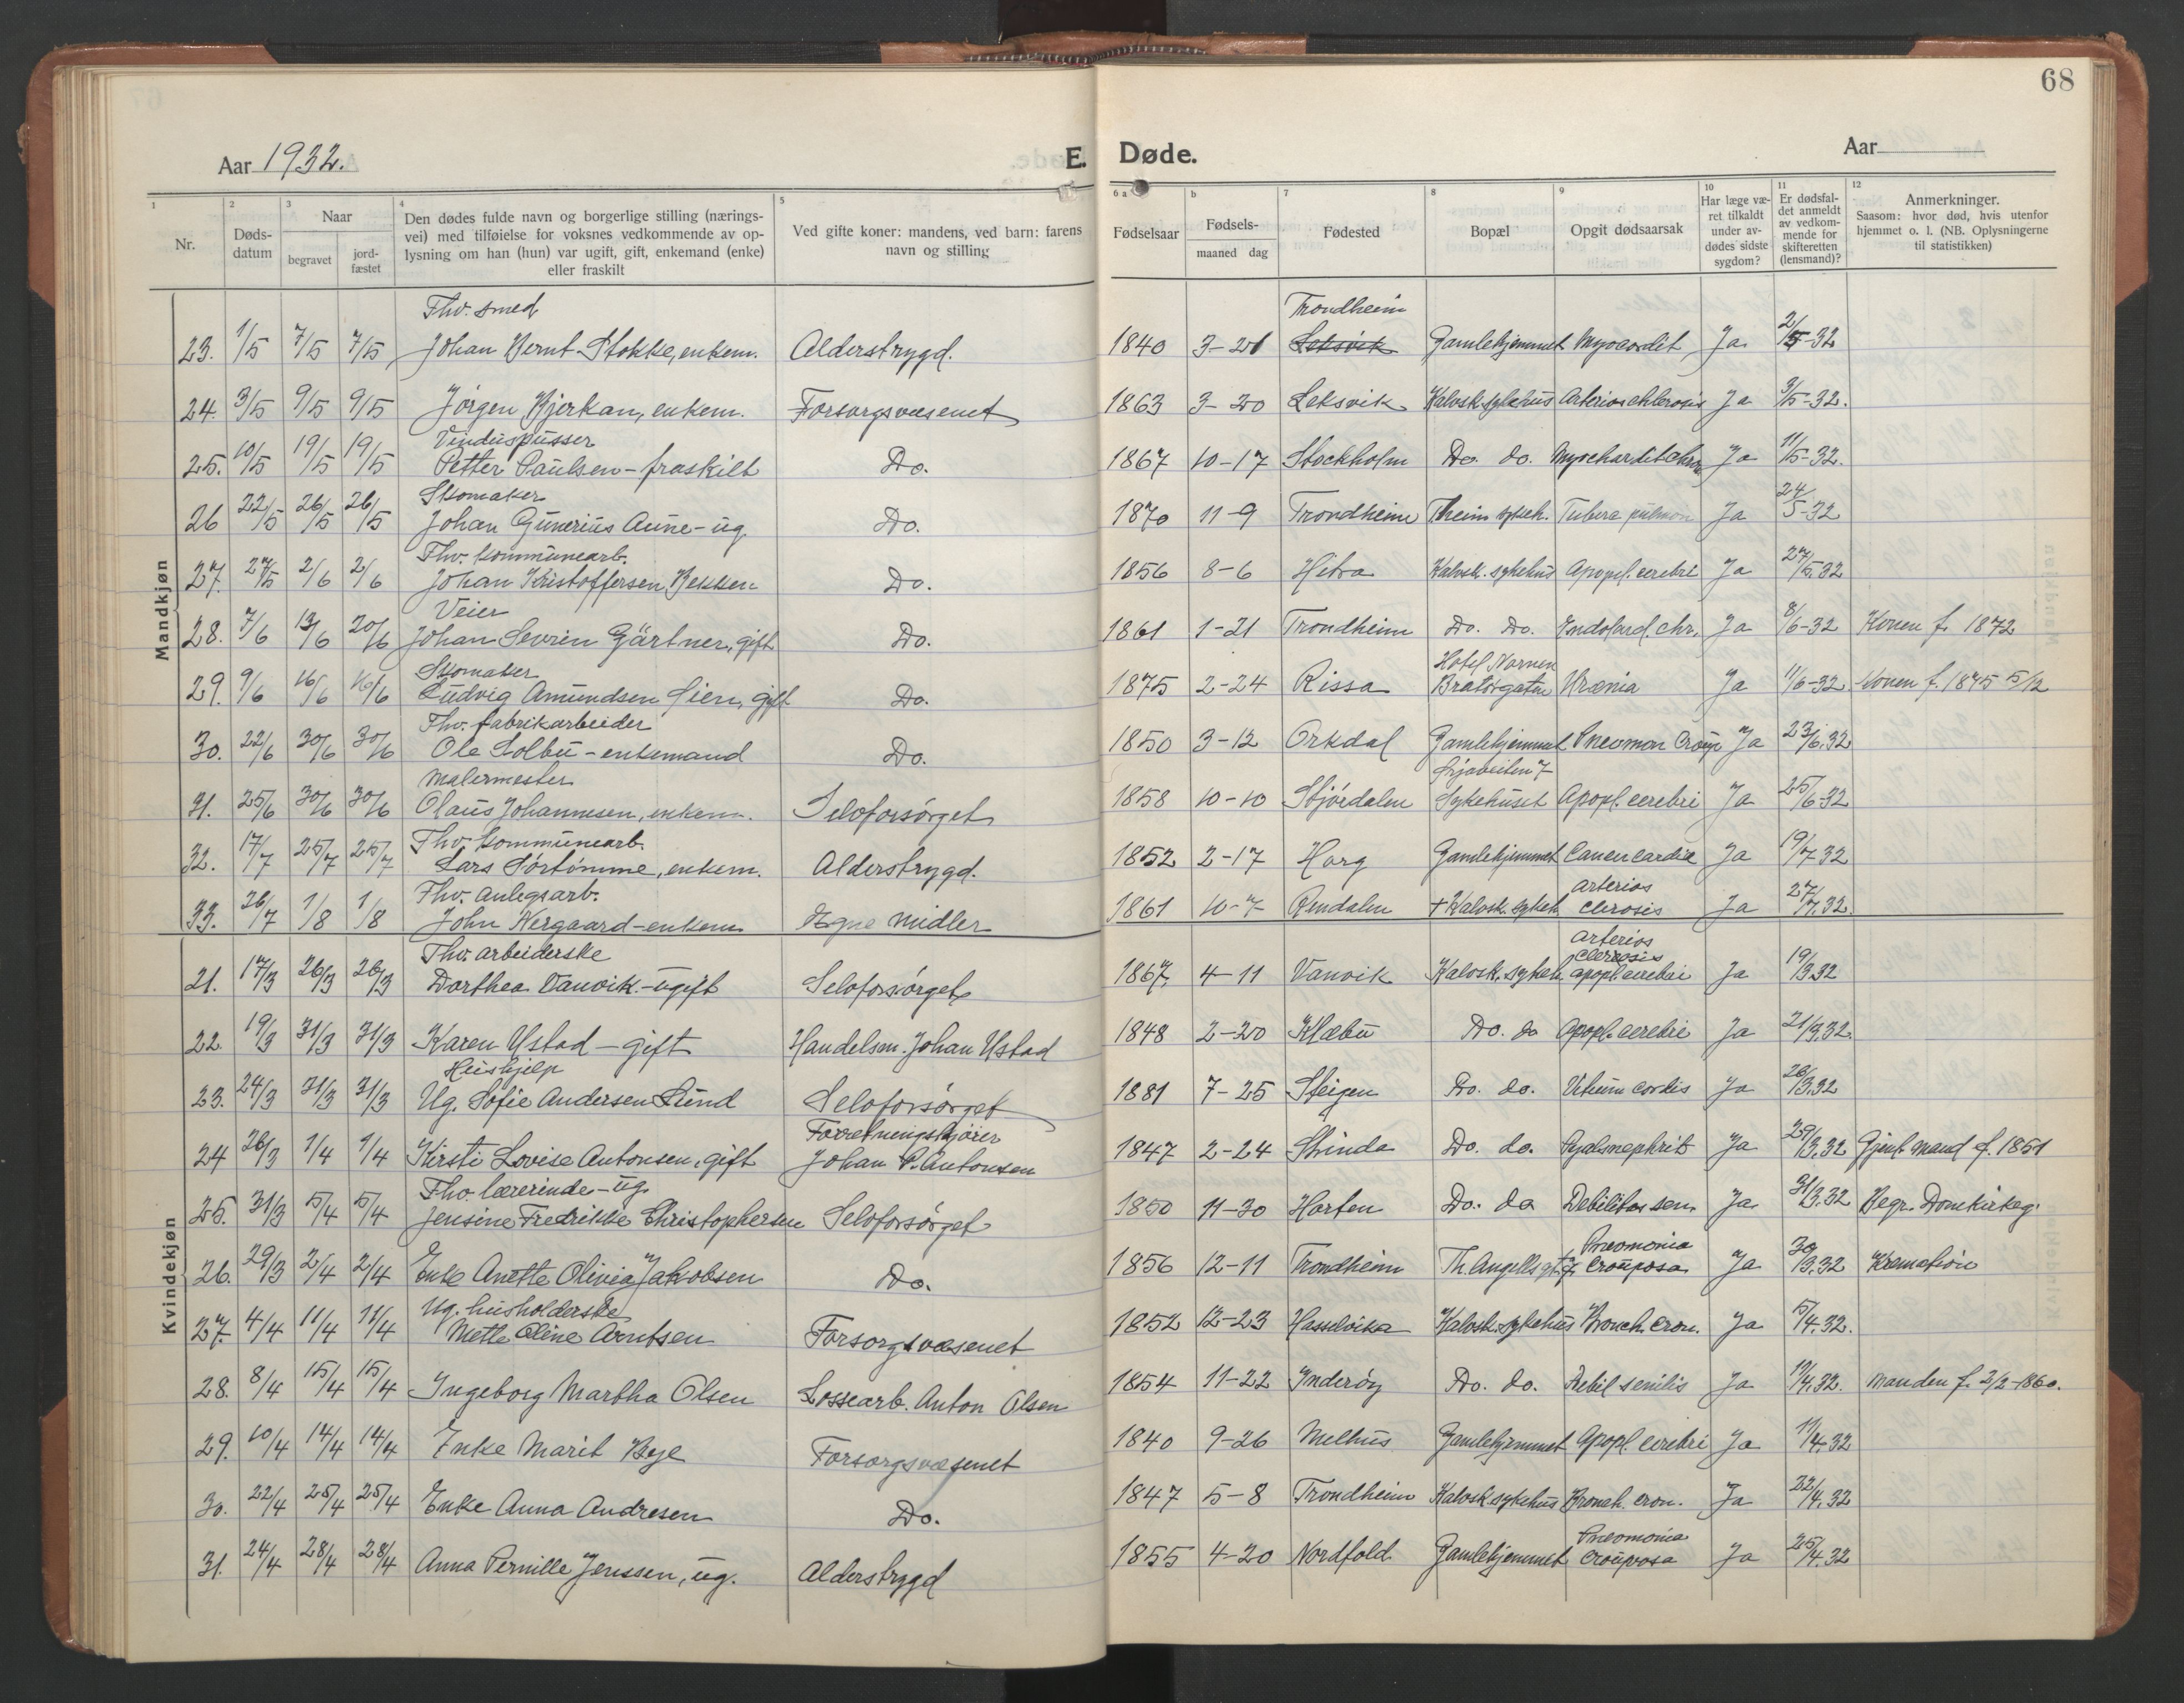 68
Aar 1932.
E. Døde.
Aar
1 2 3 4 5 6 a b 7 8 9 10 11 12
Nr. Døds-datum Naar begravet jord-fæstet Den dødes fulde navn og borgerlige stilling (nærings-vei) med tilføielse for voksnes vedkommende av op-lysning om han (hun) var ugift, gift, enkemand (enke) eller fraskilt Ved gifte koner: mandens, ved barn: farens navn og stilling Fødselsaar Fødsels- maaned dag Fødested Bopæl Opgit dødsaarsak Har læge væ-ret tilkaldt under av-dødes sidste sygdom? Er dødsfal-det anmeldt av vedkom-mende for skifteretten (lensmand)? Anmerkninger. Saasom: hvor død, hvis utenfor hjemmet o. l. (NB. Oplysningerne til statistikken)
Mandkjøn
Thv. smed Trondheim
23. 1/5 7/5 7/5 Johan Bernt Stokke, enkem. Alderstrygd. 1840 3-21 Leksvik Gamlehjemmet Myocardit Ja 2/5-32
24. 3/5 9/5 9/5 Jörgen Bjerkan, enkem. Forsorgsvæsenet 1863 3-20 Leksvik Kalvsk. sykehus Arterioschlerosis Ja 3/5-32.
Vinduspusser
25. 10/5 19/5 19/5 Petter Paulsen - fraskilt Do. 1867 10-17 Stockholm Do. do. Ja 11/5-32.
Skomaker
26 22/5 26/5 26/5 Johan Gunerius Aune - ug. Do. 1870 11-9 Trondheim T.heim sykeh. Tuberc pulmon Ja 24/5-32
Thv. kommunearb.
27. 27/5 2/6 2/6 Johan Kristoffersen Bekken Do. 1856 8-6 Hitra Kalvsk. sykehus Apopl. cerebri Ja 27/5.32
Veier
28. 7/6 13/6 20/6 Johan Sevrin Gärtner, gift Do. 1861 1-21 Trondheim Do. Do. Endokard. chr. Ja 8/6-32 Konen f. 1872
Skomaker Hotel Nornen
29. 9/6 16/6 16/6 Ludvig Amundsen Lien, gift Do. 1875 2-24 Rissa Bratörgaten Uræmia Ja 11/6-32 Konen f. 1875 5/12
Thv. fabrikarbeider
30. 22/6 30/6 30/6 Ole Solbu - enkemand Do. 1850 3-12 Orkdal Gamlehjemmet Pneomon Croup Ja 23/6.32
Malermester
31. 25/6 30/6 30/6 Olaus Johannesen, enkem. Selvforsörget 1858 10-10 Stjördalen Sykehuset Apopl. cerebri Ja 25/6-32
Thv. kommunearb.
32. 17/7 25/7 25/7 Lars Sörtömme, enkem. Alderstrygd. 1852 2-17 Horg Gamlehjemmet Cancer cardia Ja 19/7 32
Thv. anlegsarb. Arterios
33. 26/7 1/8 1/8 John Kergaard - enkem Egne midler 1861 10-7 Rendalen + Kalvsk. sykeh. clerosis Ja 27/7.32.
Kvindekjøn
Thv. arbeiderske Arterios clerosis
21. 17/3 26/3 26/3 Dorthea Vanvik - ugift Selvforsörget 1867 4-11 Vanvik Kalvsk. sykeh. apopl. cerebri Ja 19/3 32
22. 19/3 31/3 31/3 Karen Ustad - gift Handelsm. Johan Ustad 1848 2-20 Klæbu Do. do Apopl. cerebri Ja 21/3.32.
Heishjelp
23. 24/3 31/3 31/3 Ug. Sofie Andersen Lund Selvforsörget 1881 7-25 Steigen Do. do. Vitium cordis Ja 26/3.32
Forretningsförer
24 26/3 1/4 1/4 Kirsti Lovise Antonsen, gift Johan P. Antonsen 1847 2-24 Strinda Do. do. Ja 29/3.32 Gjenl. mand f. 1851
Thv. lærerinde - ug.
25. 31/3 5/4 5/4 Jensine Fredrikke Christophersen Selvforsörget 1850 11-30 Horten Do. do Debilitas sen. Ja. 31/3.32 Begr. Domkirkeg.
Pneomonia
26. 29/3 2/4 2/4 Enke Anette Olivia Jakobsen Do. 1856 12-11 Trondheim Th. Angells gt. Crouposa Ja 30/3.32 Kremation
Ug. husholderske
27. 4/4 11/4 11/4 Mette Oline Arntsen Forsorgsvæsenet 1852 12-23 Hasselvika Kalvsk. sykehus Bronch. cron. Ja 5/4.32.
28. 8/4 15/4 15/4 Ingeborg Martha Olsen Lossearb. Anton Olsen 1854 11-22 Inderöy Do. do. Debil senilis Ja 11/4.32. Manden f. 2/2-1860.
29. 10/4 14/4 14/4 Enke Marit Bye Forsorgsvæsenet 1840 9-26 Melhus Gamlehjemmet Apopl. cerebri Ja 11/4.32
30. 22/4 25/4 25/4 Enke Anna Andresen Do. 1847 5-8 Trondheim Kalvsk sykehus Bronch. cron. Ja 22/4.32
Pneomonia
31. 24/4 28/4 28/4 Anna Pernille Jenssen, ug. Alderstrygd 1855 4-20 Nordfold Gamlehjemmet Crouposa Ja 25/4.32